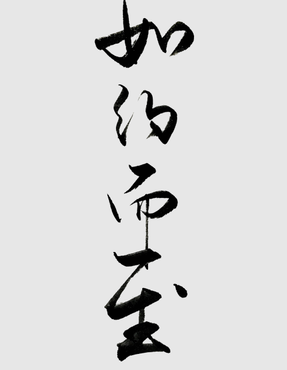 如约而至